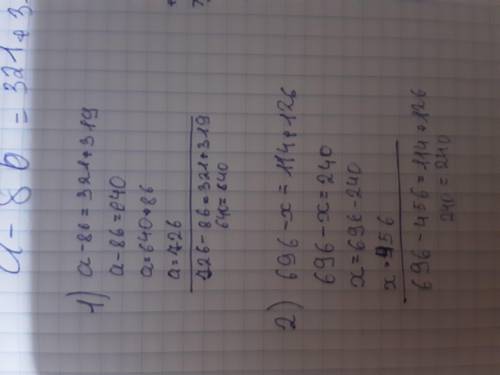 a - 86 = 321 + 3
1) a - 86 = 321 + 319
a - 86 = 640
a = 640 + 86
a = 726
726 - 86 = 321 + 319
640 = 640
2) 696 - x = 114 + 126
696 - x = 240
x = 696 - 240
x = 456
696 - 456 = 114 + 126
240 = 240